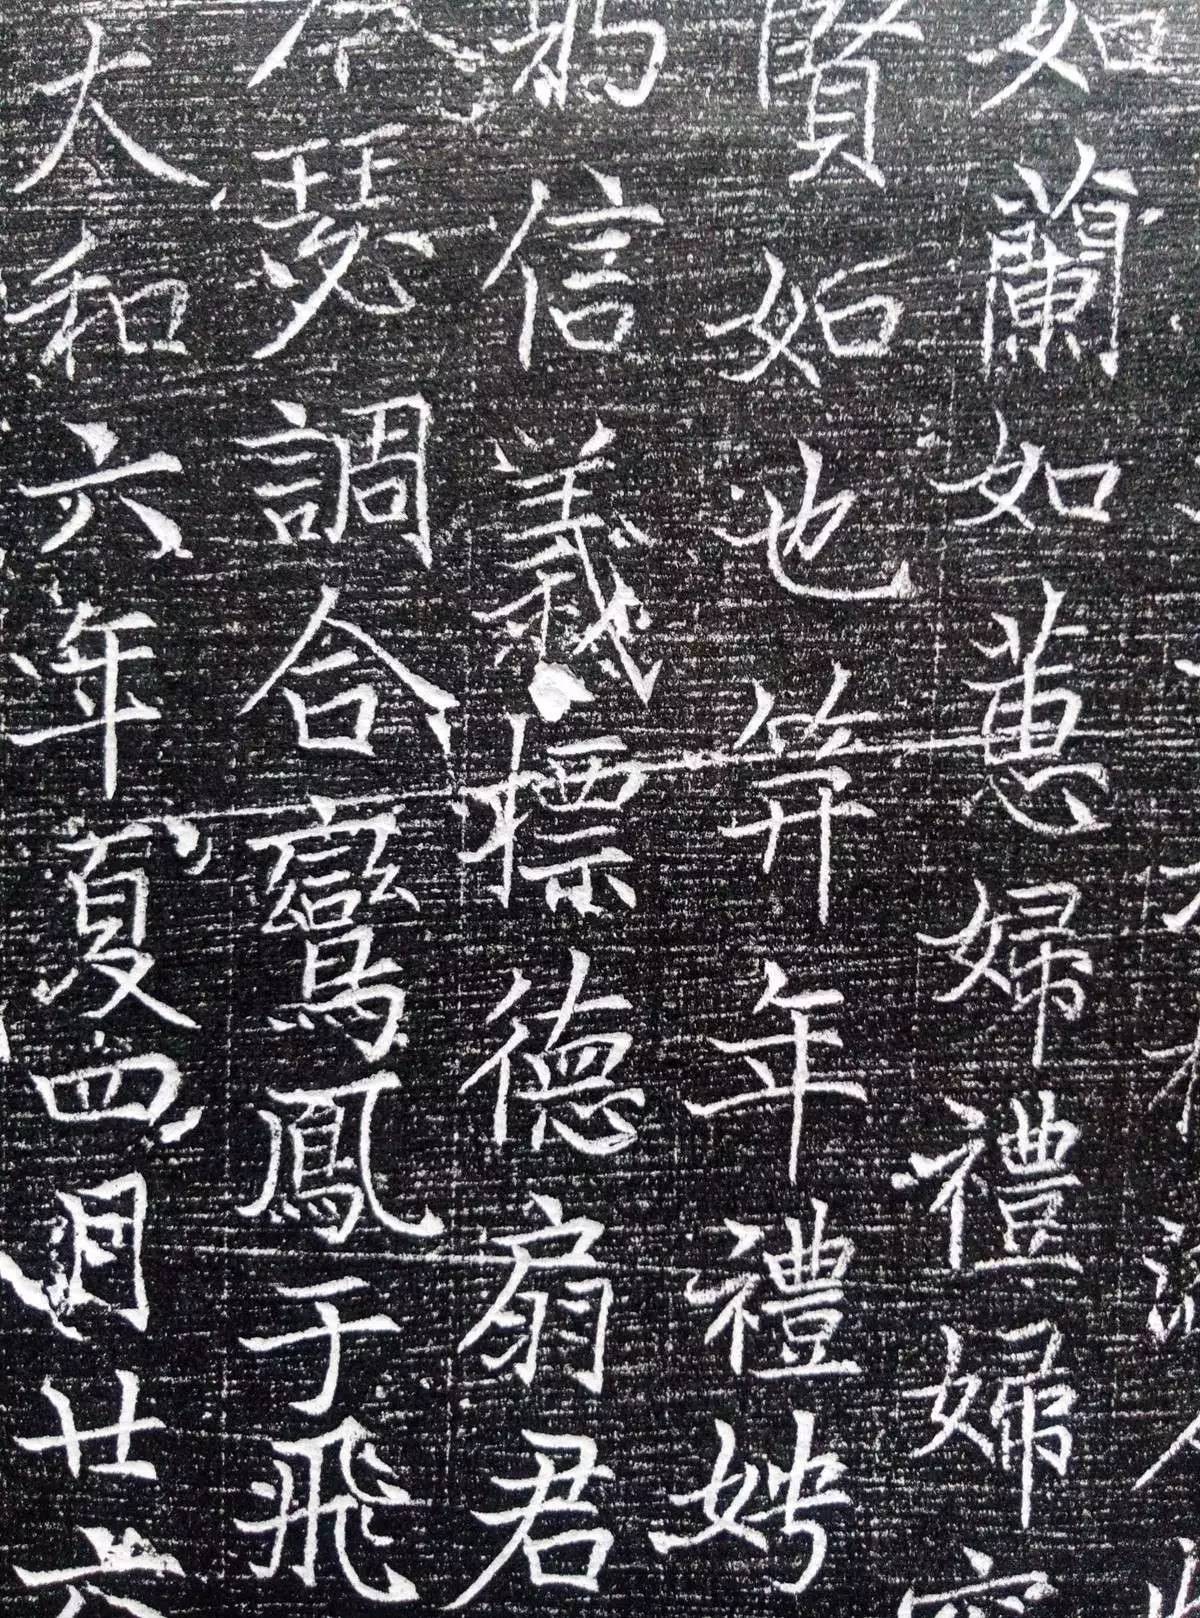 如蘭如蕙婦禮婦
賢如也笄年禮娉
信義標德扇君
琴瑟調合鸞鳳于飛
大和六年夏四月廿六